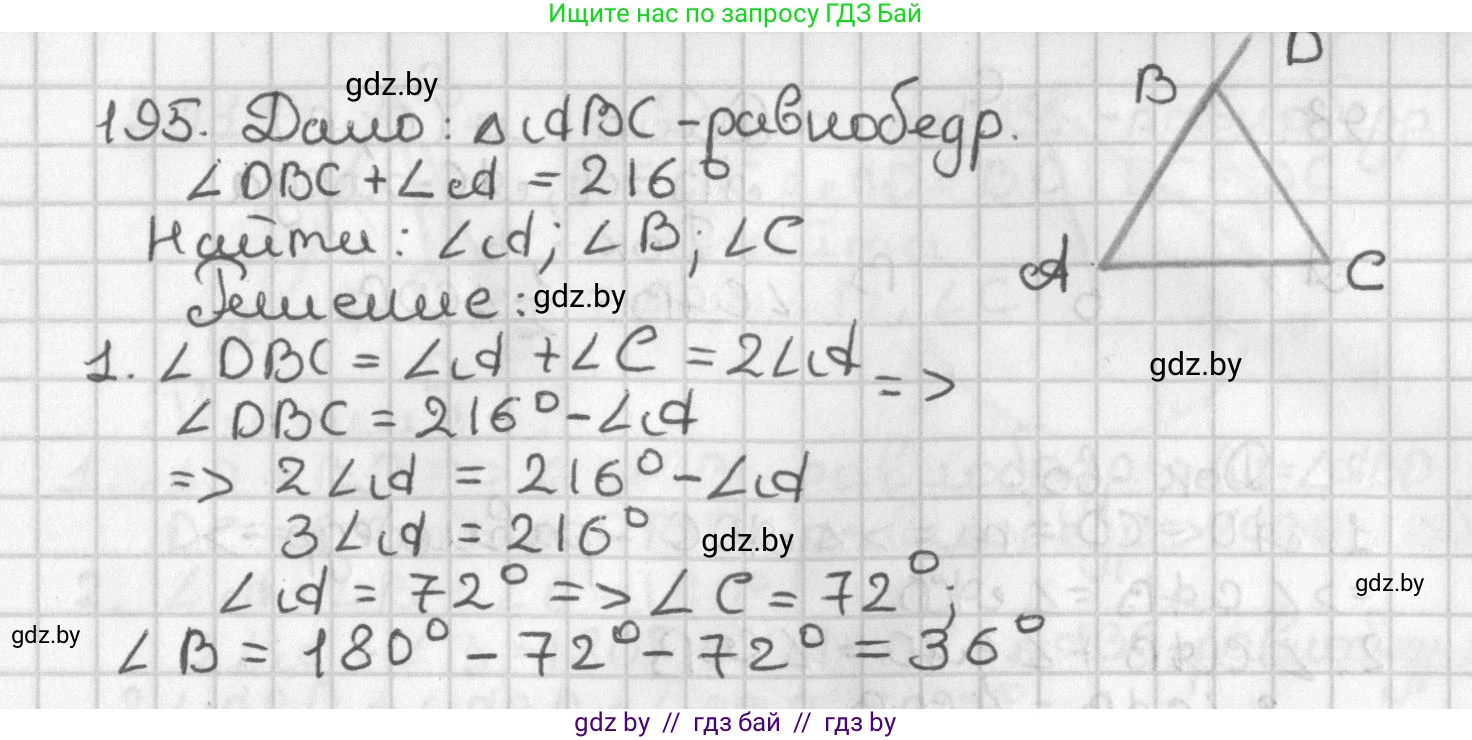 Ищите нас по запросу ГДЗ Бай
gdz.by
195. Дано: △ABC - равнобедр.
∠DBC + ∠A = 216°
Найти: ∠A; ∠B; ∠C
Решение:
gdz.by
1. ∠DBC = ∠A + ∠C = 2∠A =>
∠DBC = 216° - ∠A
=> 2∠A = 216° - ∠A
3∠A = 216°
gdz.by
∠A = 72° => ∠C = 72°;
∠B = 180° - 72° - 72° = 36°
D
B
A
C
gdz.by
gdz.by
gdz.by
gdz by // гдз бай // гдз by